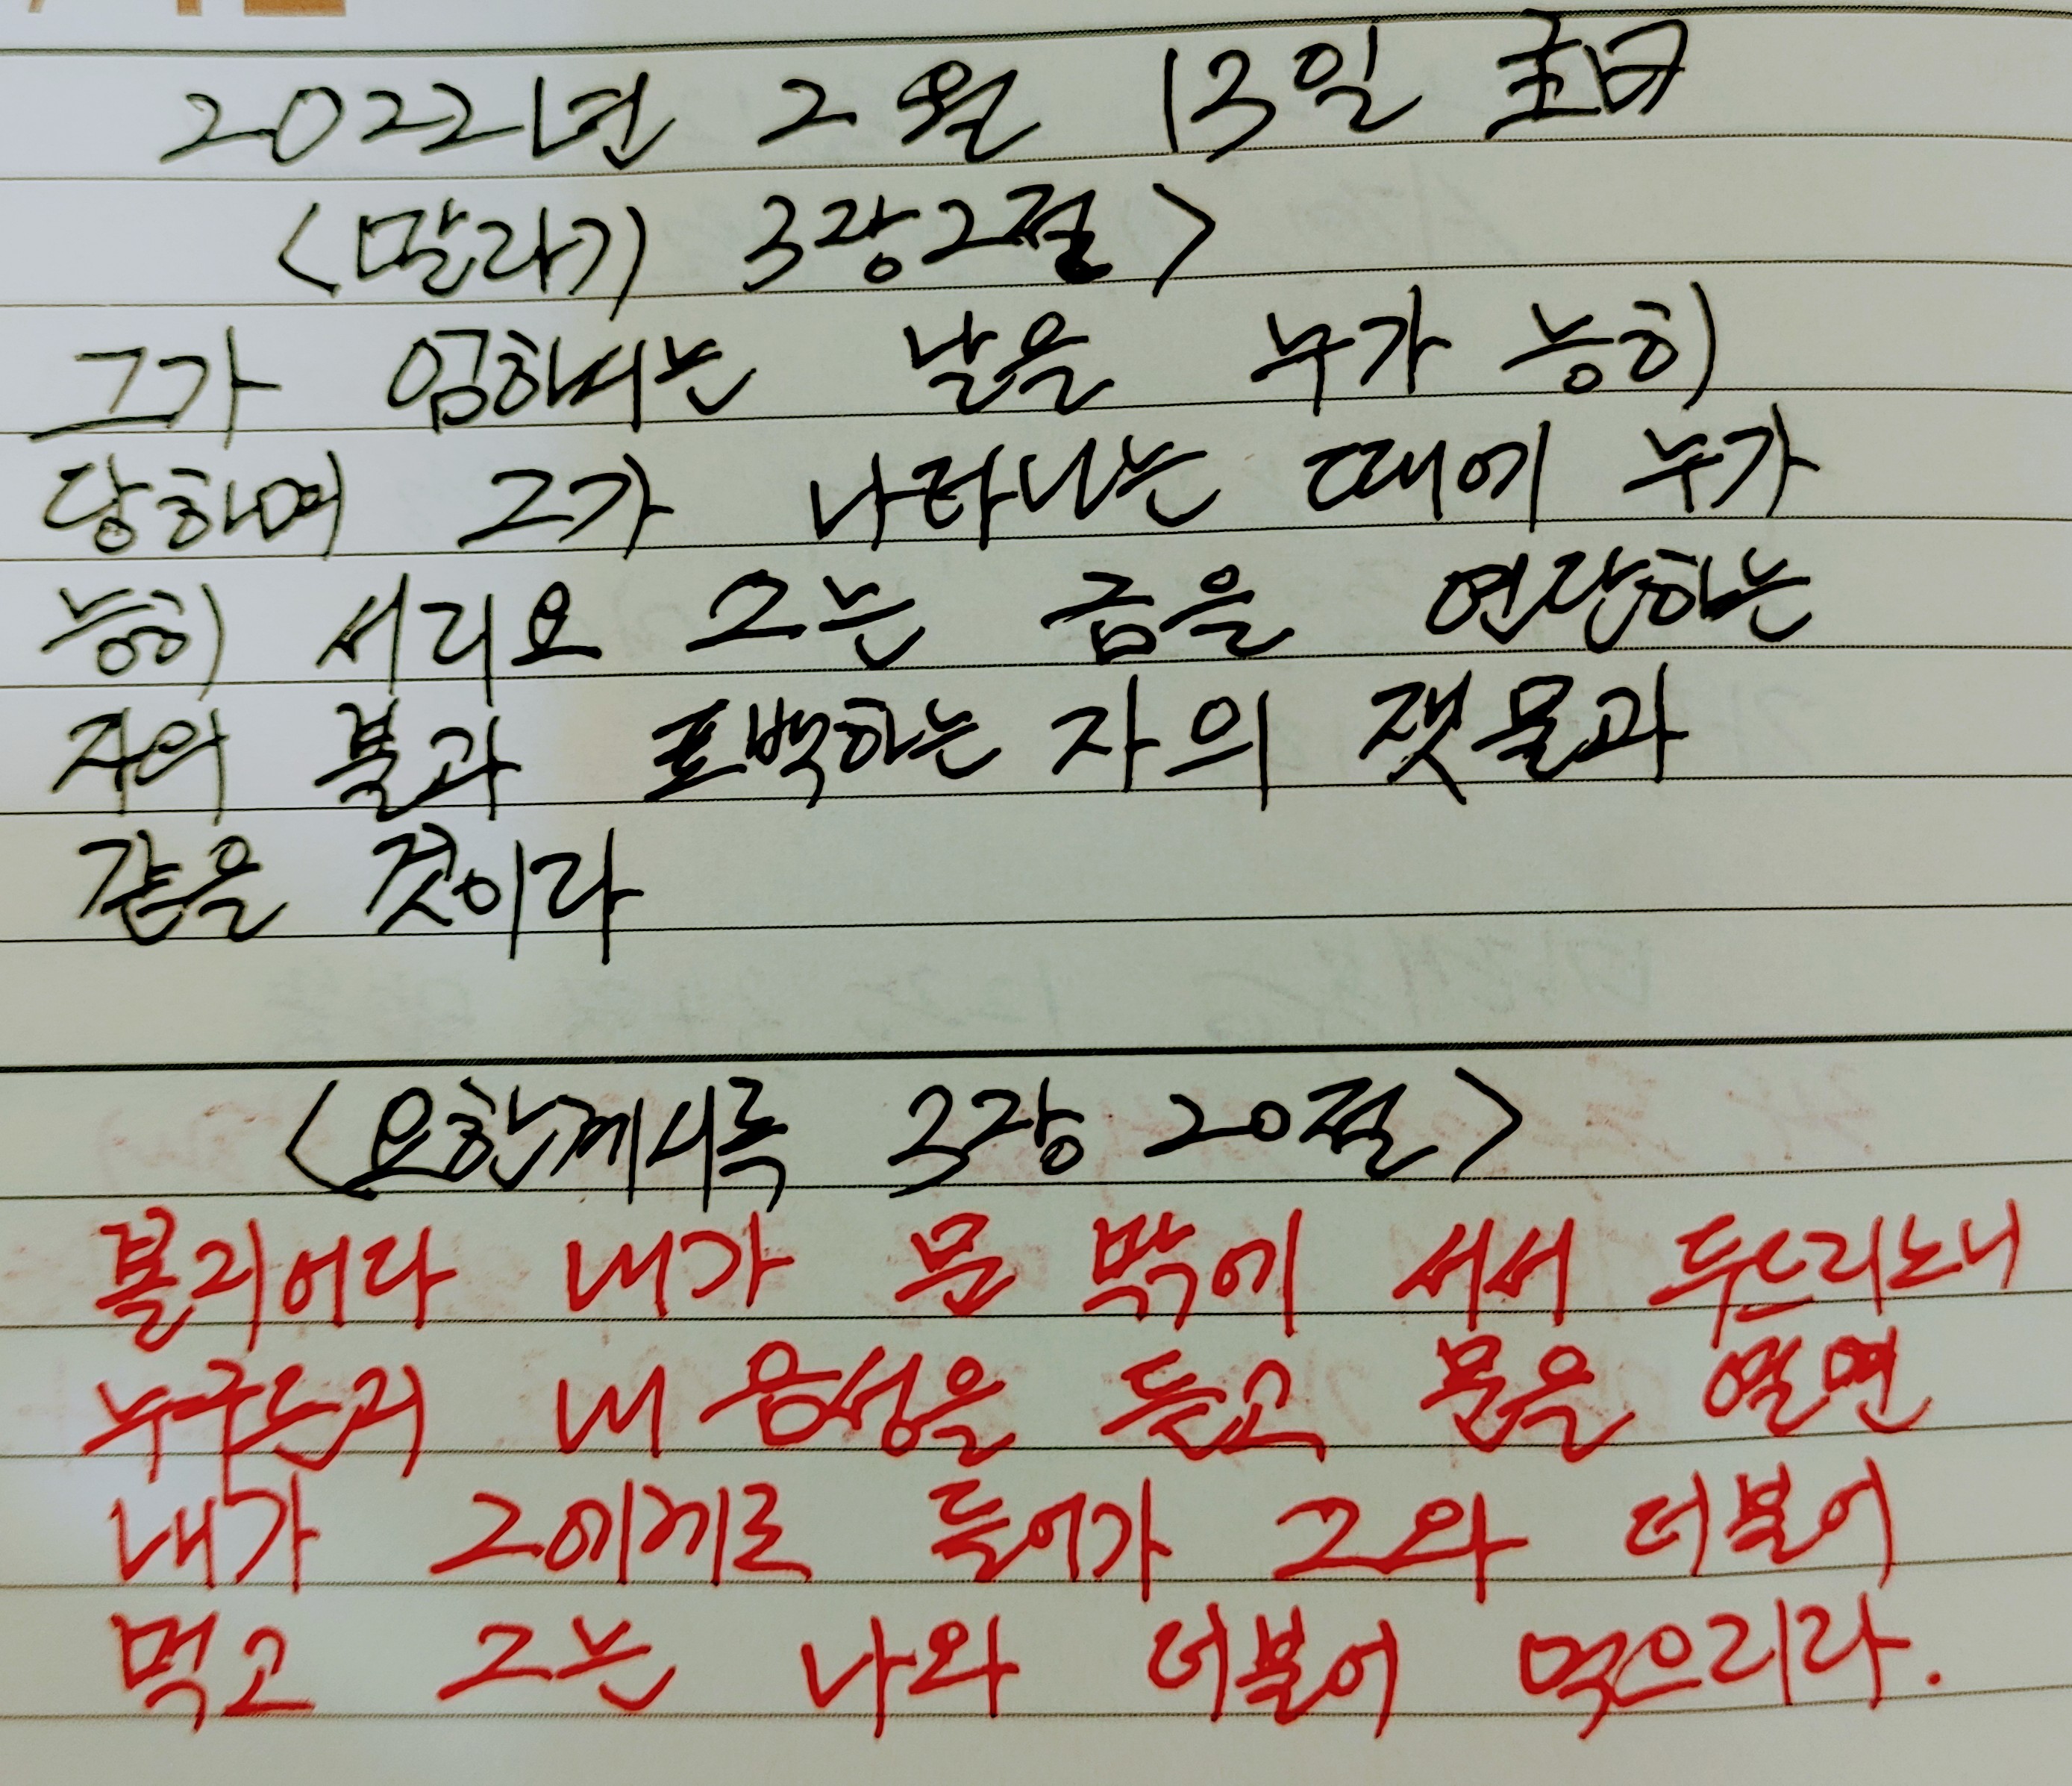 2022년 2월 13일 主日
<말라기 3장2절>
그가 임하시는 날을 누가 능히
당하며 그가 나타나는 때에 누가
능히 서리요 그는 금을 연단하는
자의 불과 표백하는 자의 잿물과
같은 것이라
<요한계시록 3장 20절>
볼지어다 내가 문 밖에 서서 두드리노니
누구든지 내 음성을 듣고 문을 열면
내가 그에게로 들어가 그와 더불어
먹고 그는 나와 더불어 먹으리라.